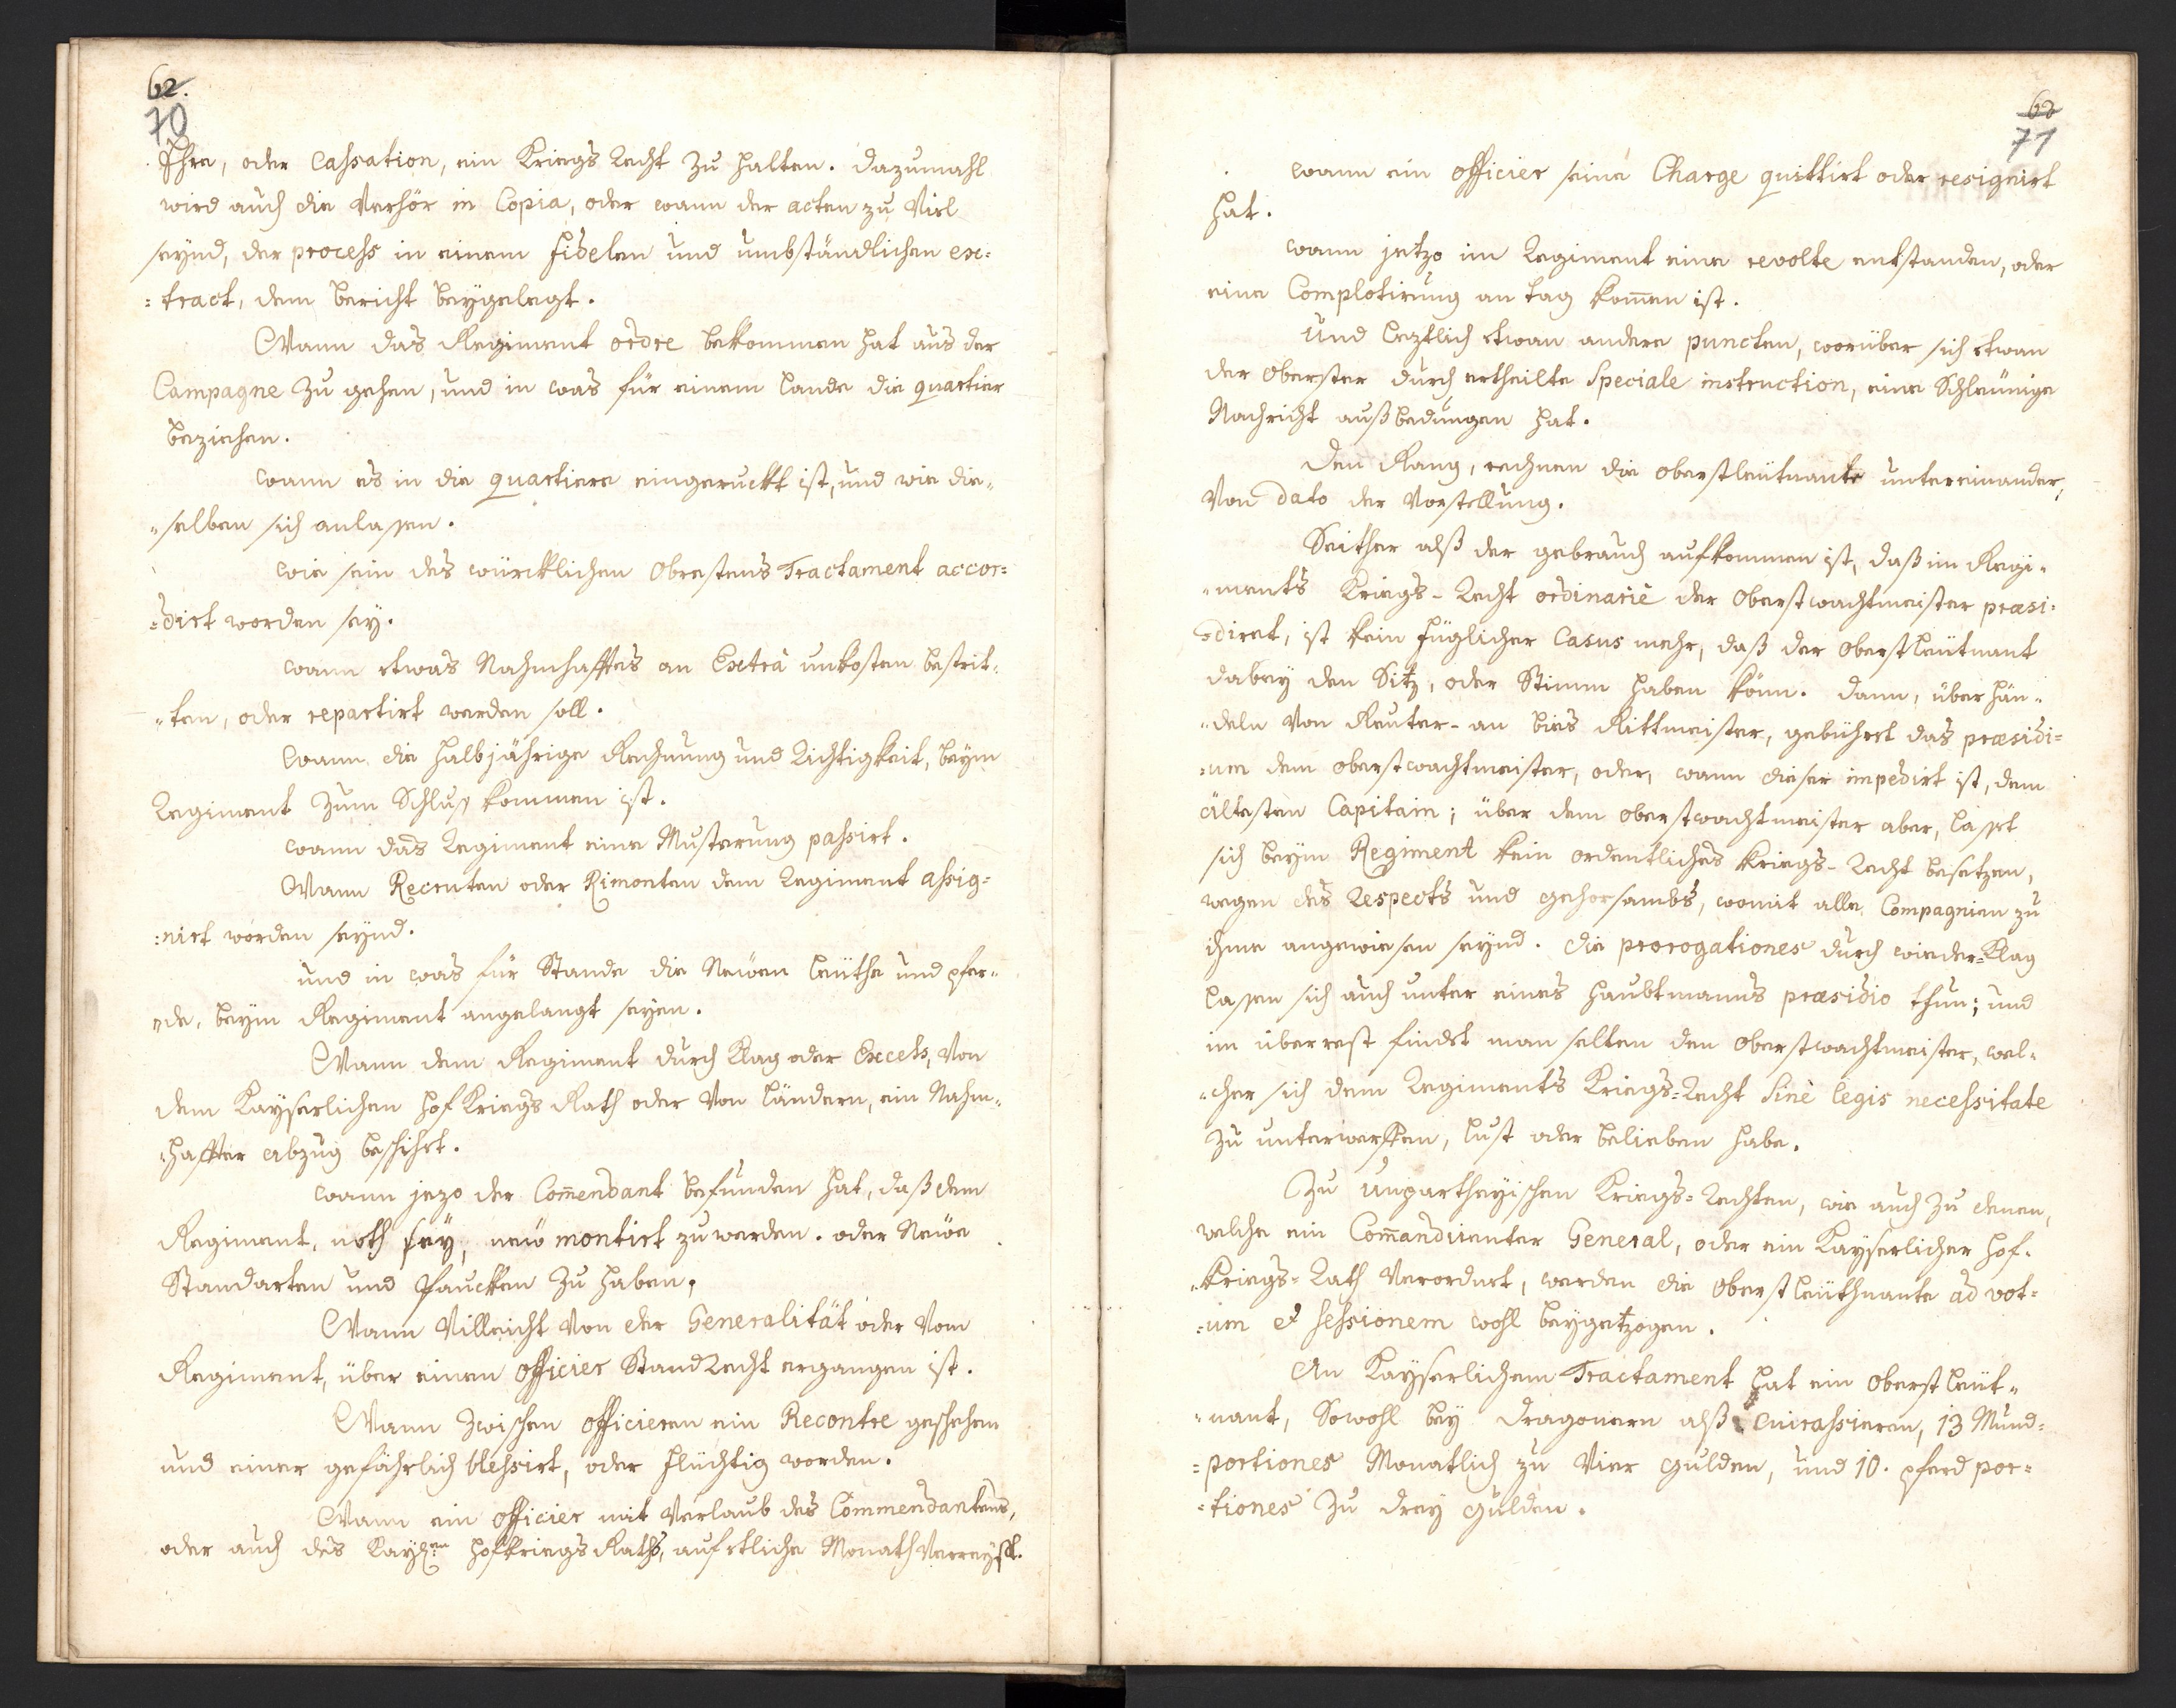 62.
70
Ehre, oder Cassation, ein Kriegs Recht zu halten. Dazumahl
wird auch die Verhör in Copia, oder wann der acten zu Viel
seynd, der process in einem fidelen und umbständlichen ex:
:tract, dem Bericht beygelegt.
Wann das Regiment ordre bekommen hat aus der
Campagne zu gehen, und in was für einem Lande die quartier
beziehen.
wann es in die quartiere eingeruckt ist, und wie die„
„selben sich anlassen.
wie sein des würcklichen Obrestens Tractament accor:
:dirt worden sey.
wann etwas Nahmhafftes an Extrà unkosten bestrit„
„ten, oder repartirt werden soll.
Wann die halbjährige Rechnung und Richtigkeit, beym
Regiment zum Schluss kommen ist.
wann das Regiment eine Musterung passirt.
Wann Recruten oder Rimonten dem Regiment assig:
:nirt worden seynd.
und in was für Stande die Neüen Leüthe und pfer„
„de, beym Regiment angelangt seyen.
Wann dem Regiment durch Klag oder Excess, Von
dem Kayserlichen Hof Kriegs Rath oder Von Ländern, ein Nahm„
„haffter abzug beschiht.
wann jezo der Com̄endant befunden hat, daß dem
Regiment, noth sey, neü montirt zu werden. oder Neüe
Standarten und Paucken zu haben.
Wann Villeicht Von der Generalität oder Vom
Regiment, über einen officier Stand Recht ergangen ist.
Wann zwischen officieren ein Recontre geschehen
und einer gefährlich blessirt, oder flüchtig worden.
Wann ein officier mit Verlaub des Commendantens,
oder auch des Kayßen Hofkriegs Raths, auf etliche Monath Verreyst.
62
71
wann ein officier seine Charge quittirt oder resignirt
hat.
wann jetzo im Regiment eine revolte entstanden, oder
eine Complotirung an tag kom̄en ist.
Und leztlich etwan andere puncten, worüber sich etwan
der Oberster durch ertheilte Speciale instruction, eine Schleünige
Nachricht außbedungen hat.
Den Rang, rechnen die Oberstleütnante untereinander,
Von dato der Vorstellung.
Seither alß der gebrauch aufkommen ist, daß im Regi„
„ments Kriegs-Recht ordinariè der Oberstwachtmeister præsi:
:diret, ist kein füglicher Casus mehr, daß der Oberstleütnant
dabey den Sitz, oder Stimm haben könn. Dann, über hän„
„deln Von Reuter- an bies Rittmeister, gebühret das præsidi:
:um dem Oberstwachtmeister, oder, wann dieser impedirt ist, dem
ältesten Capitain; über dem Oberstwachtmeister aber, lasset
sich beym Regiment kein ordentliches Kriegs-Recht besetzen,
wegen des Respects und gehorsambs, womit alle Compagnien zu
ihme angewiesen seynd. Die prorogationes durch wieder=Klag
lassen sich auch unter eines Haubtmanns præsidio thun; und
im überrest findet man selten den Oberstwachtmeister, wel„
„cher sich dem Regiments Kriegs=Recht Sinè legis necessitate
zu unterwerffen, lust oder belieben habe.
Zu Unpartheyischen Kriegs=Rechten, wie auch zu denen,
welche ein Com̄andirenter General, oder ein Kayserlicher Hof„
„Kriegs=Rath Verordnet, werden die Oberstleüthnante ad vot:
:um et sessionem wohl beygetzogen.
An Kayserlichem Tractament hat ein Oberstleüt„
„nant, Sowohl bey Dragonern alß Cuirassieren, 13 Mund:
:portiones Monatlich zu Vier gulden, und 10. pferd por:
:tiones zu drey gulden.